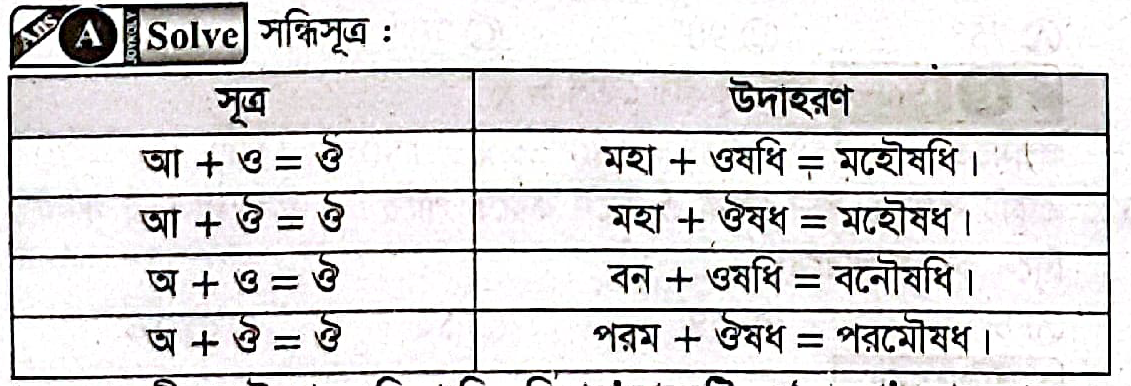 Ans A JOYKOLY Solve সন্ধিসূত্র :
সূত্র উদাহরণ
আ + ও = ঔ মহা + ওষধি = মহৌষধি।
আ + ঔ = ঔ মহা + ঔষধ = মহৌষধ।
অ + ও = ঔ বন + ওষধি = বনৌষধি।
অ + ঔ = ঔ পরম + ঔষধ = পরমৌষধ।